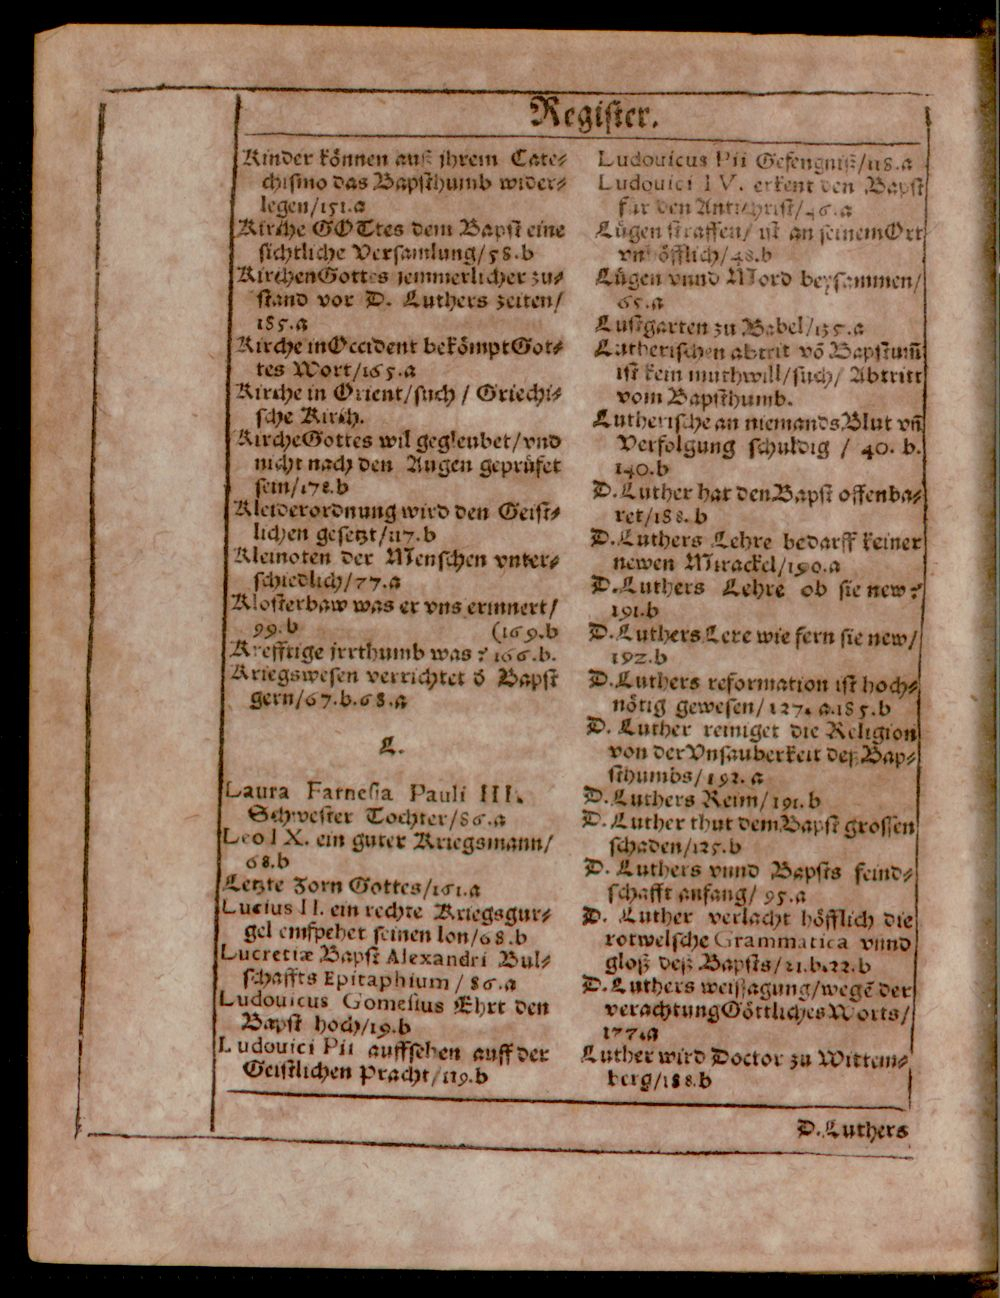 Register.
Kinder können auß jhrem Cate⸗
chismo das Bapsthumb wider⸗
legen/151.a
Kirche GOTtes dem Bapst eine
sichtliche Versamlung/58.b
KirchenGottes jemmerlicher zu⸗
stand vor D. Luthers zeiten/
185.a
Kirche inOccident bekömptGot⸗
tes Wort/165.a
Kirche in Orient/such / Griechi⸗
sche Kirch.
KircheGottes wil gegleubet/vnd
nicht nach den Augen geprüfet
sein/178.b
Kleiderordnung wird den Geist⸗
lichen gesetzt/117.b
Kleinoten der Menschen vnter⸗
schiedlich/77.a
Klosterbaw was er vns erinnert/
99.b (169.b
Krefftige jrrthumb was? 166.b.
Kriegswesen verrichtet ð Bapst
gern/67.b.68.a
L.
Laura Farnesia Pauli III.
Schwester Tochter/86.a
Leo IX. ein guter Kriegsmann/
68.b
Letzte Zorn Gottes/161.a
Lucius II. ein rechte Kriegsgur⸗
gel empfehet seinen lon/68.b
Lucretiæ Bapst Alexandri Bul⸗
schaffts Epitaphium / 86.a
Ludouicus Gomesius Ehrt den
Bapst hoch/19.b
Ludouici Pii auffsehen auff der
Geistlichen Pracht/119.b
Ludouicus Pii Gefengniß/118.a
Ludouici IV. erkent den Bapst
für den Antichrist/46.a
Lügen straffen/ ist an seinemOrt
vnhöfflich/48.b
Lügen vnnd Mord beysammen/
65.a
Lustgarten zu Babel/135.a
Lutherischen abtrit võ Bapstum̃
ist kein muthwill/such/ Abtritt
vom Bapsthumb.
Lutherische an niemandsBlut vñ
Verfolgung schuldig / 40. b.
140.b
D.Luther hat denBapst offenba⸗
ret/188.b
D.Luthers Lehre bedarff keiner
newen Mirackel/190.a
D.Luthers Lehre ob sie new?
191.b
D.Luthers Lere wie fern sie new/
192.b
D.Luthers reformation ist hoch⸗
nötig gewesen/127. a.185.b
D. Luther reiniget die Religion
von derVnsauberkeit deß Bap⸗
sthumbs/192.a
D.Luthers Reim/191.b
D.Luther thut demBapst grossen
schaden/125.b
D. Luthers vnnd Bapsts feind⸗
schafft anfang/ 95.a
D. Luther verlacht höfflich die
rotwelsche Grammatica vnnd
gloß deß Bapsts/21.b.22.b
D.Luthers weissagung/wegẽ der
verachtungGöttlichesWorts/
177.a
Luther wird Doctor zu Wittem⸗
berg/188.b
D.Luthers